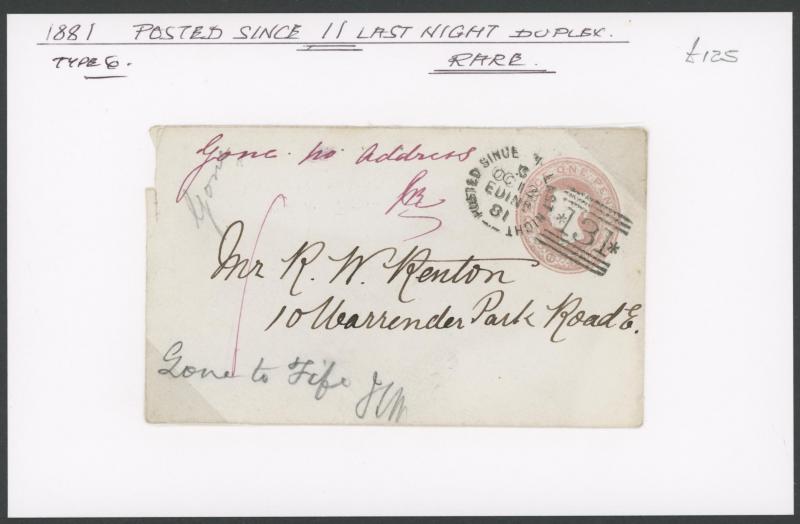 1881 POSTED SINCE 11 LAST NIGHT DUPLEX.
TYPE 6.
RARE.
£125
Gone. no address
Gone
POSTED SINCE 11 LAST NIGHT
OC
EDINB
81
131
ONE PENNY
Mr R. W. Renton
10 Warrender Park Road E.
Gone to Fife